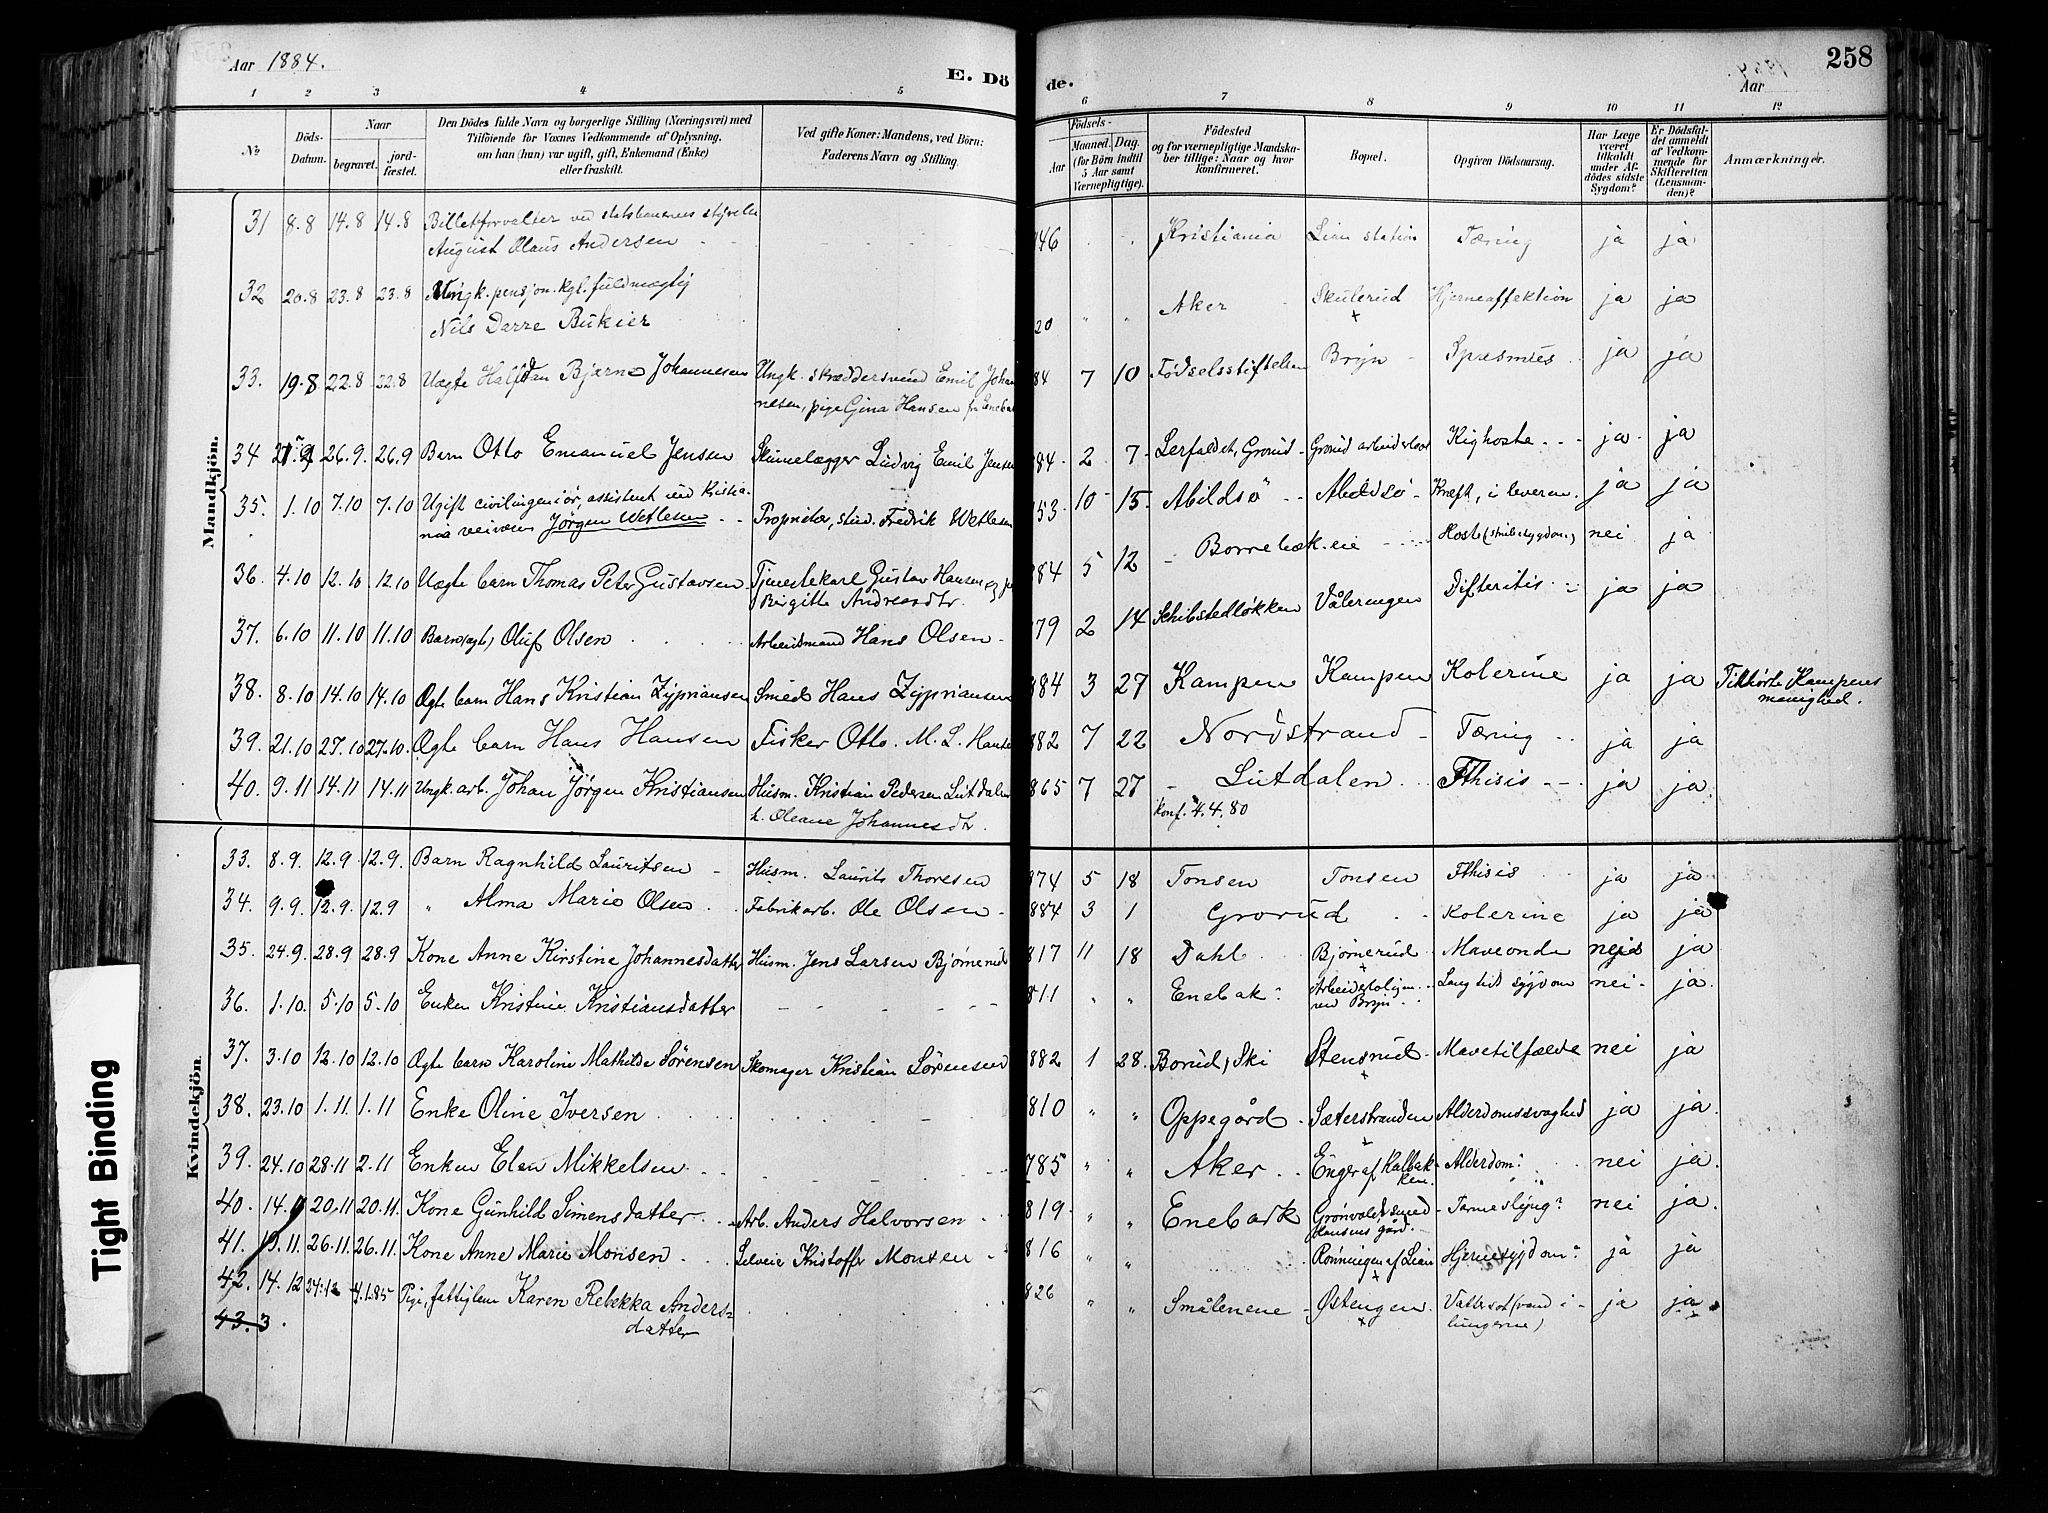 Aar 1884.
E. Dö
de.
258
Aar
1 2 3 4 5
6 7 8 9 10 11 12
No
Döds-Datum.
Naar
begravet.
jord-fæstet.
Den Dödes fulde Navn og borgerlige Stilling (Næringsvei) med
Tilföiende for Voxnes Vedkommende af Oplysning,
om han (hun) var ugift, gift, Enkemand (Enke)
eller fraskilt.
Ved gifte Koner: Mandens, ved Börn:
Faderens Navn og Stilling.
Födsels-
Aar
Maaned. Dag.
(for Börn indtil
5 Aar samt
Værnepligtige).
Födested
og for værnepligtige Mandska-
ber tillige: Naar og hvor
konfirmeret.
Bopæl.
Opgiven Dödsaarsag.
Har Læge
været
tilkaldt
under Af-
dödes sidste
Sygdom?
Er Dödsfal-
det anmeldt
af Vedkom-
mende for
Skifteretten
(Lensman-
den)?
Anmærkninger.
Mandkjön.
31 8.8 14.8 14.8 Billetforvalter ved statsbanernes styrelse
August Olaus Andersen 46 Kristiania Lian station Tæring ja ja
32 20.8 23.8 23.8 Ungk. pensjon. kgl. fuldmægtig
Nils Darre Bukier 20 " " Aker Skulerud Hjerneaffektion ja ja
33. 19.8 22.8 22.8 Uægte Halfdan Bjarne Johannesen Ungk. skræddersvend Emil Johan
nesen, pige Gina Hansen fra Enebak 84 7 10 Födselsstiftelsen Bryn Spasmus ja ja
34 26.9. 26.9 Barn Otto Emanuel Jensen Skinnelægger Ludvig Emil Jensen 84 2 7 Lerfaldet, Grorud Grorud Kighoste ja ja
35. 1.10 7.10 7.10 Ugift civilingeniör, assistent ved Kristia-
nia veivæsen Jörgen Wetlesen Proprietær, stud. Fredrik Wetlesen 53 10 15 Abildsö Abildsö Kræft, i leveren ja ja
36. 4.10 12.10 12.10 Uægte barn Thomas Peter Gustavsen Tjenestekarl Gustav Hansen og
Birgitte Andreasdtr. 84 5 12 Borrebæk. eie Hoste nei ja
37. 6.10 11.10 11.10 Barn (ægt) Oluf Olsen Arbeidsmand Hans Olsen 79 2 14 Schibstedløkken Vålerengen Difteritis ja ja
38. 8.10 14.10 14.10 Ogte barn Hans Kristian Zypriansen Smed Hans Zypriansen 884 3 27 Kampen Kampen Kolerine ja ja Tilhörte Kampens
menighed.
39. 21.10 27.10 27.10. Ogte barn Hans Hansen Fisker Otto. M. L. Hansen 882 7 22 Nordstrand Tæring ja ja
40. 9.11 14.11 14.11 Ungk. arb. Johan Jörgen Kristiansen Husm. Kristian Pedersen Lutdalen
h. Oleane Johannesdtr. 865 7 27 Lutdalen Fthisis ja ja.
konf. 4.4.80
Kvindekjön.
33. 8.9. 12.9. 12.9. Barn Ragnhild Lauritsen Husm. Laurits Thoresen 874 5 18 Tonsen Tonsen Fthisis ja ja
34. 9.9. 12.9. 12.9 " Alma Marie Olsen Fabrikarb. Ole Olsen 884 3 1 Grorud Kolerine ja ja
35. 24.9 28.9 28.9 Kone Anne Kirstine Johannesdatter Husm. Jens Larsen Bjørnerud 817 11 18 Dahl Bjørnerud Maveonde nei ja
36. 1.10. 5.10 5.10 Enken Kristine Kristiansdatter 811 " " Enebak? Arbeiderboligen
ved Bryn Lang tids sygdom nei ja.
37. 3.10 12.10 12.10 Ogte barn Karoline Mathilde Sörensen Skomager Kristian Sörensen 882 1 28. Borud, Ski Stensrud Mavetilfælde nei ja
38. 23.10 1.11. 1.11 Enke Oline Iversen 810 " " Oppegård Sæterstranden Alderdomssvaghed ja ja.
39. 24.10 28.11 2.11 Enken Elen Mikkelsen 785 " " Aker Enger af Kalbak-
ken. Alderdom. nei ja.
40. 14. 20.11 20.11. Kone Gunhild Simensdatter Arb. Anders Halvorsen 819 " Enebark Grönvold, smed
Hansens gård. Tarmeslyng? nei ja.
41. 19.11. 26.11. 26.11. Kone Anne Marie Monsen Selveier Kristoffer Monsen 816 " " Rönningen af Lian Hjernesygdom? ja ja
42. 14. 12 24.12 4.1.85 Pige, fattiglem Karen Rebekka Anders-
datter 826 " " Smålenene Østengen Vattersot (vand i
lungerne) ja ja
43. 3.
Tight Binding